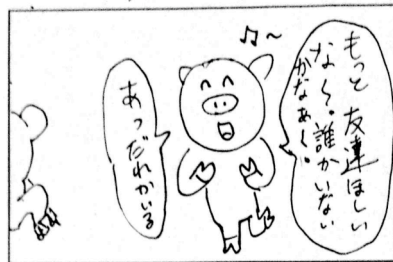 もっと 友達ほしい
なぁ〜。誰かいない
かなぁ〜。
あっだれかいる